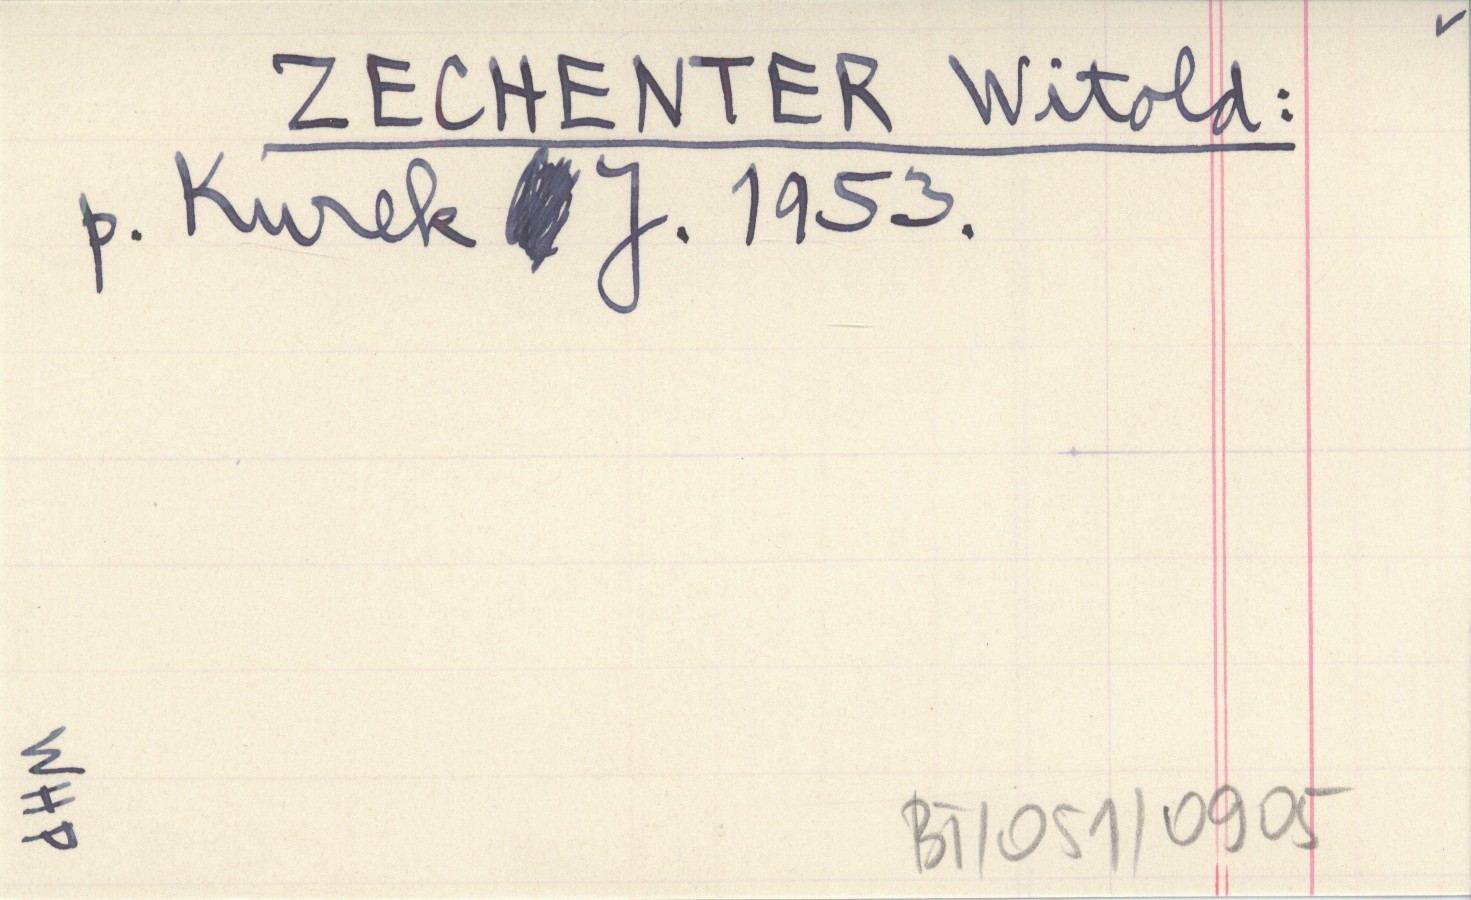 ZECHENTER Witold:
p. Kurek J. 1953.
WHP
BT/051/0905